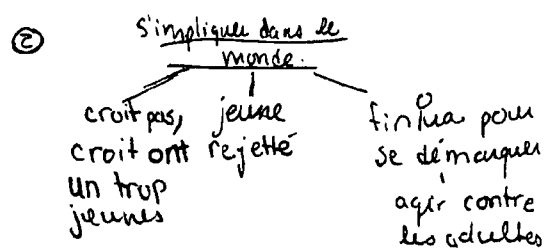 ②
s'impliquer dans le
monde.
croit pas,
croit ont
un trop
jeunes
jeune
rejetté
pour
se démarquer
agir contre
les adultes